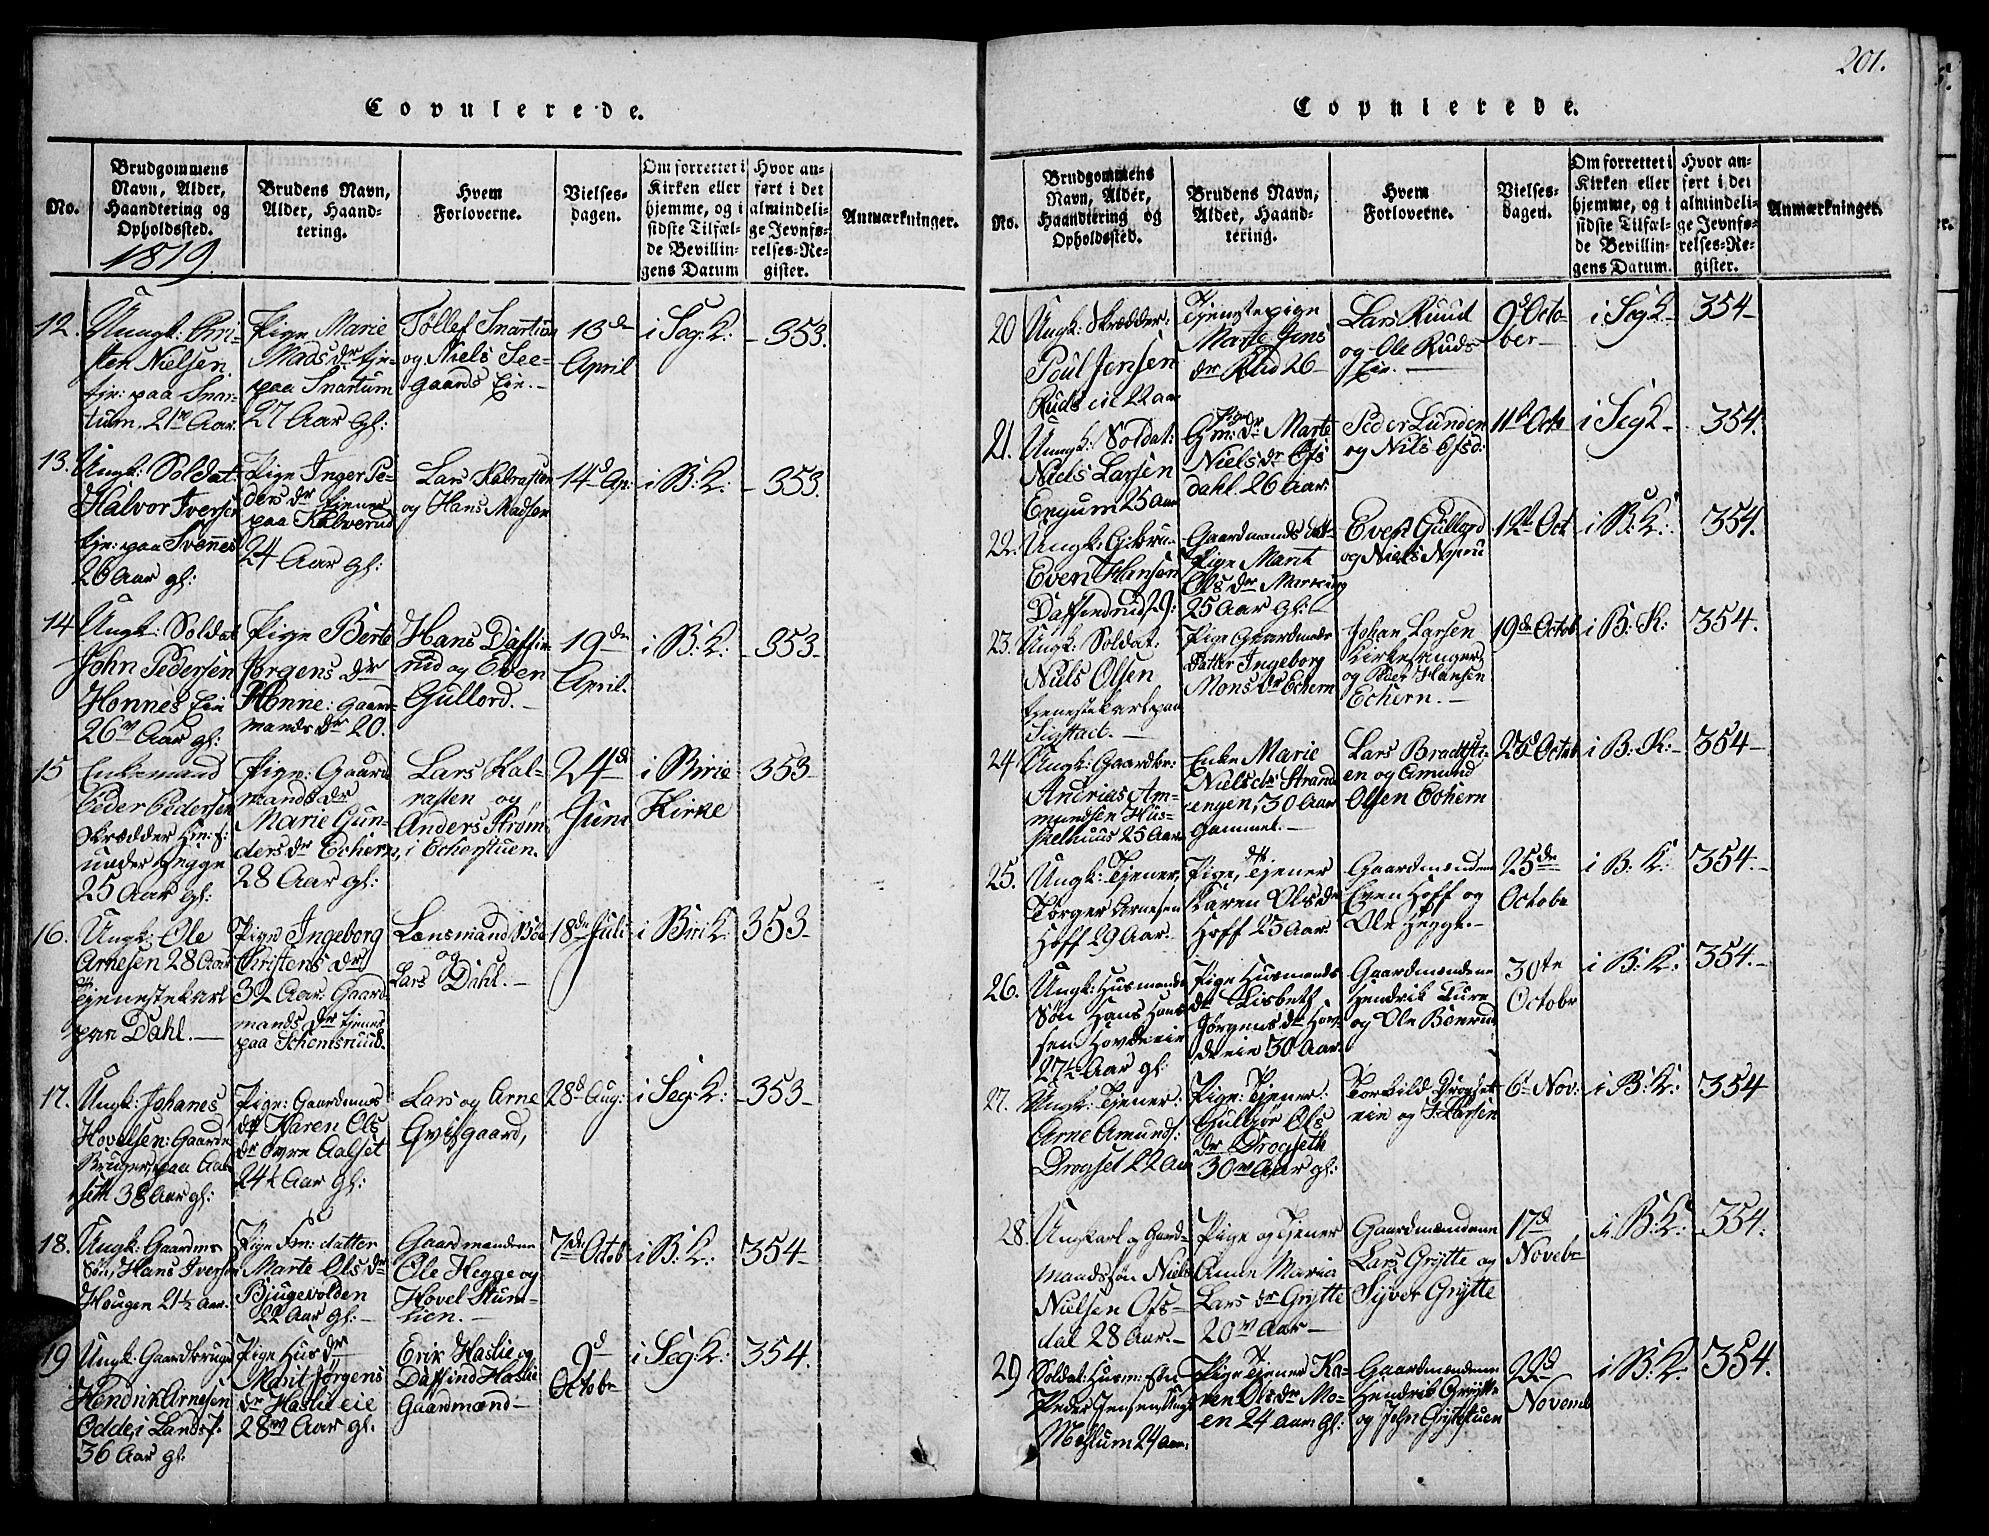 201.
Copulerede.
No.
Brudgommens
Navn, Alder,
Haandtering og
Opholdssted.
1819
Brudens Navn,
Alder, Haand-
tering.
Hvem
Forloverne.
Vielses-
dagen.
Om forrettet i
Kirken eller
hjemme, og i
sidste Tilfæl-
de Bevillin-
gens Datum
Hvor an-
ført i det
almindeli-
ge Jevnfø-
relses-Re-
gister.
Anmærkninger.
12.
Ungk: Cri-
sten Nielsen.
tje: paa Snar-
tum. 21 Aar.
Pige Marie
Mads dr tje-
paa Snartum
27 Aar gl:
Tøllef Snartum
og Niels See-
gaards Eie.-
13de
April
i Seg: K:
353.
13.
Ungk: Soldat
Halvor Iversen
tje: paa Svennes
26 Aar gl:
Pige Inger Pe-
ders dr tjener
paa Kalverud
24 Aar gl:
Lars Kalrasten
og Hans Madsen
14d Ap:
i B: K:
353.
14
Ungk: Soldat
John Pedersen
Honnes Eie
26 Aar gl:
Pige Berte
Jørgens dr
Honne: Gaard-
mands dr 20.
Hans Daffin-
rud og Even
Gullord.
19de
April.
i B: K:
353
15
Enkemand
Peder Pedersen
Skrædder
under Hegge
25 Aar gl:
Pige: Gaard
mands dr
Marie Gun-
ders dr Echern,
28 Aar gl:
Lars Kal-
rasten og
Anders Strøm
i Echerstuen.
24de
Juni
i Birie
Kirke
353
16.
Ungk: Ole
Arnesen 28 Aar
Tjenestekarl
paa Dahl.
Pige Ingeborg
Christens dr
32 Aar. Gaard
mands dr tjener
paa Schomsruud.
Lensmand Böe
og
Lars Dahl.
18de Juli
i Biri K:
353
17.
Ungk: Johanes
Hovelsen: Gaard-
Bruger paa Aal-
seth 38 Aar gl:
Pige: Gaardmds
dr Karen Ols
dr øvre Aalset
24½ Aar gl:
Lars og Arne
Qvisgaard,
28d Aug:
i Seg: K:
353
18.
Ungk: Gaardms
Søn, Hans Iversen
Hougen 21½ Aar.
Pige datter
Marte Ols dr
Bjugevolden
22 Aar gl:
Gaardmændene
Ole Hegge og
Hovel Stum-
lien.
7de Octob
i B: K:
354
19
Ungk: Gaardbruger
Hendrik Arnesen
Odde, i Land
36 Aar gl:
Pige Hus dr
Marit Jørgens
dr Haslie eie
28 Aar gl.
Erik Haslie og
Daffind Haslie
Gaardmænd
9d
Octobr
i Seg: K:
354.
Copulerede.
No.
Brudgommens
Navn, Alder,
Haandtering og
Opholdssted.
Brudens Navn,
Alder, Haand-
tering.
Hvem
Forloverne.
Vielses-
dagen.
Om forrettet i
Kirken eller
hjemme, og i
sidste Tilfæl-
de Bevillin-
gens Datum.
Hvor an-
ført i det
almindeli-
ge Jevnfø-
relses-Re-
gister.
Anmærkninger.
20
Ungk: Skrædder:
Poul Jensen
Ruds eie 22 aar
Tjenestepige
Marte Jens
dr Rud 26
Lars Ruud
og Ole Ruds
Eie.
9d Octo-
ber
i Seg K
354
21.
Ungk: Soldat:
Niels Larsen
Engum 25 Aar
Marte
Niels dr Ofs
dahl. 26 Aar.
Peder Lunden
og Nils Ofsd:
11d Octo
i Seg K
354.
22.
Ungk: Gbru-
Even Hansen
Daffindrud 29:
Gaardmands datt-
Pige Marit
Ols dr
25 Aar gl:
Even Gullord
og Niels Nyru
12d Oct
i B: K:
354.
23.
Ungk: Soldat:
Niels Olsen
tjenestekarl paa
Sigstad.
Pige Gaardmds
Datter Ingeborg
Mons dr Echern
Johan Larsen
Kirkesanger
og Peder Hansen
Echern.
19de Octob
i B: K:
354.
24
Ungk: Gaardbr:
Andrias Am-
mundsen Hus-
kelhuus 25 Aar
Enke Marie
Niels dr Strand
engen, 30 Aar
gammel.
Lars Bradtsti-
en og Amund
Olsen Echern
23d Octob
i B: K:
354
25.
Ungk: Tjener,
Børger Arnesen
Hoff 29 Aar
Pige, Tjener
Karen Ols dr
Hoff 25 Aar
Gaardmændene
Even Hoff og
Ole Hegge.
25de
Octobr
i B: K:
354
26.
Ungk: Husmands
Søn Hans Han-
sen Hovdeeie
27½ Aar gl:
Pige Husmands
dr Lisbeth
Jørgens dr Hov-
deeie 30 Aar.
Gaardmændene
Hendrik Ture
og Ole Bonrud
30te
Octobr
i B: K:
354.
27.
Ungk: Tjener:
Arne Amunds:
Drogset 22 Aar
Pige: Tjener:
Gulbjør Ols
dr Drogseth
30 Aar gl:
Torkild Drogset
eie og J: Larsen
6t Nov:
i B: K:
354
28.
Ungkarl og Gaard-
mandssøn Niels
Nielsen Ofs-
dal 28 Aar.
Pige og Tjener
Anne Maria
Lars dr Grytte
20 Aar
Gaardmændene
Lars Grytte og
Siver Grytte
17d
Novebr
i B: K:
354.
29
Soldat: Husm: Søn
Peder Jensen, Ungk
Mæhlum 24 aar.
Pige Tjener Ka-
ren Ols dr Mo-
en 24 aar gl:
Gaardmændene
Hendrik Grytte
og John Gryttestuen
22d
Novemb
i B: K:
354.